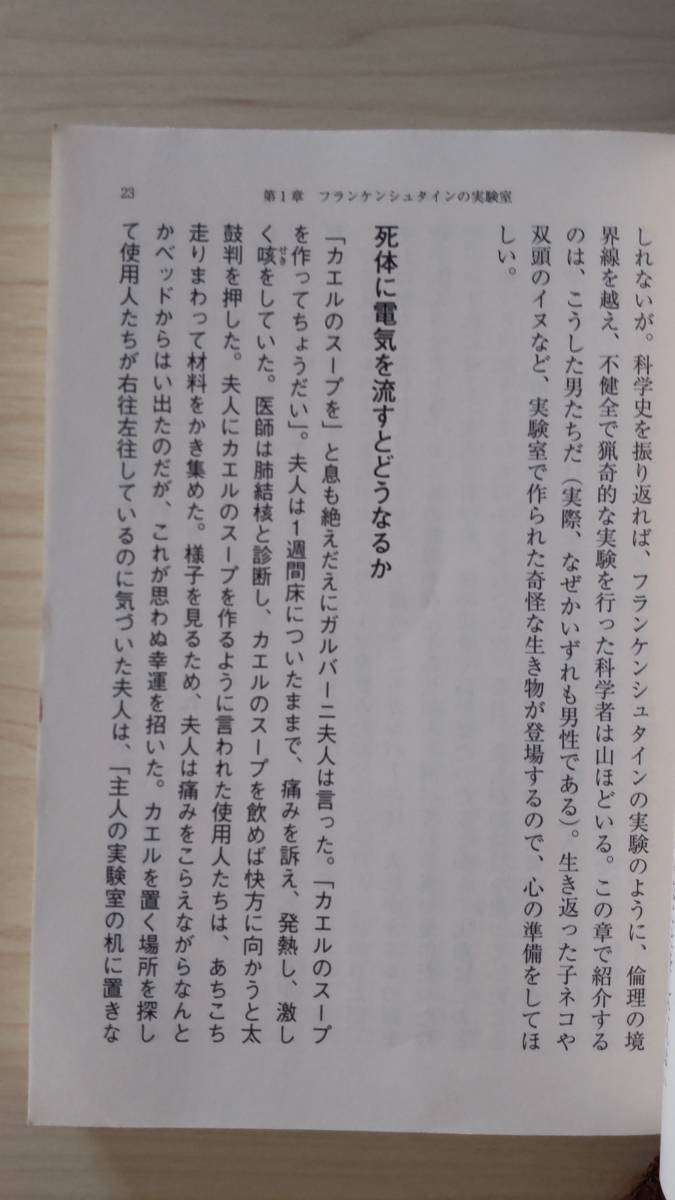 23
第1章 フランケンシュタインの実験室
しれないが。科学史を振り返れば、フランケンシュタインの実験のように、倫理の境
界線を越え、不健全で猟奇的な実験を行った科学者は山ほどいる。この章で紹介する
のは、こうした男たちだ（実際、なぜかいずれも男性である）。生き返った子ネコや
双頭のイヌなど、実験室で作られた奇怪な生き物が登場するので、心の準備をしてほ
しい。
死体に電気を流すとどうなるか
「カエルのスープを」と息も絶えだえにガルバーニ夫人は言った。「カエルのスープ
を作ってちょうだい」。夫人は1週間床についたままで、痛みを訴え、発熱し、激し
く咳せきをしていた。医師は肺結核と診断し、カエルのスープを飲めば快方に向かうと太
鼓判を押した。夫人にカエルのスープを作るように言われた使用人たちは、あちこち
走りまわって材料をかき集めた。様子を見るため、夫人は痛みをこらえながらなんと
かベッドからはい出たのだが、これが思わぬ幸運を招いた。カエルを置く場所を探し
て使用人たちが右往左往しているのに気づいた夫人は、「主人の実験室の机に置きな